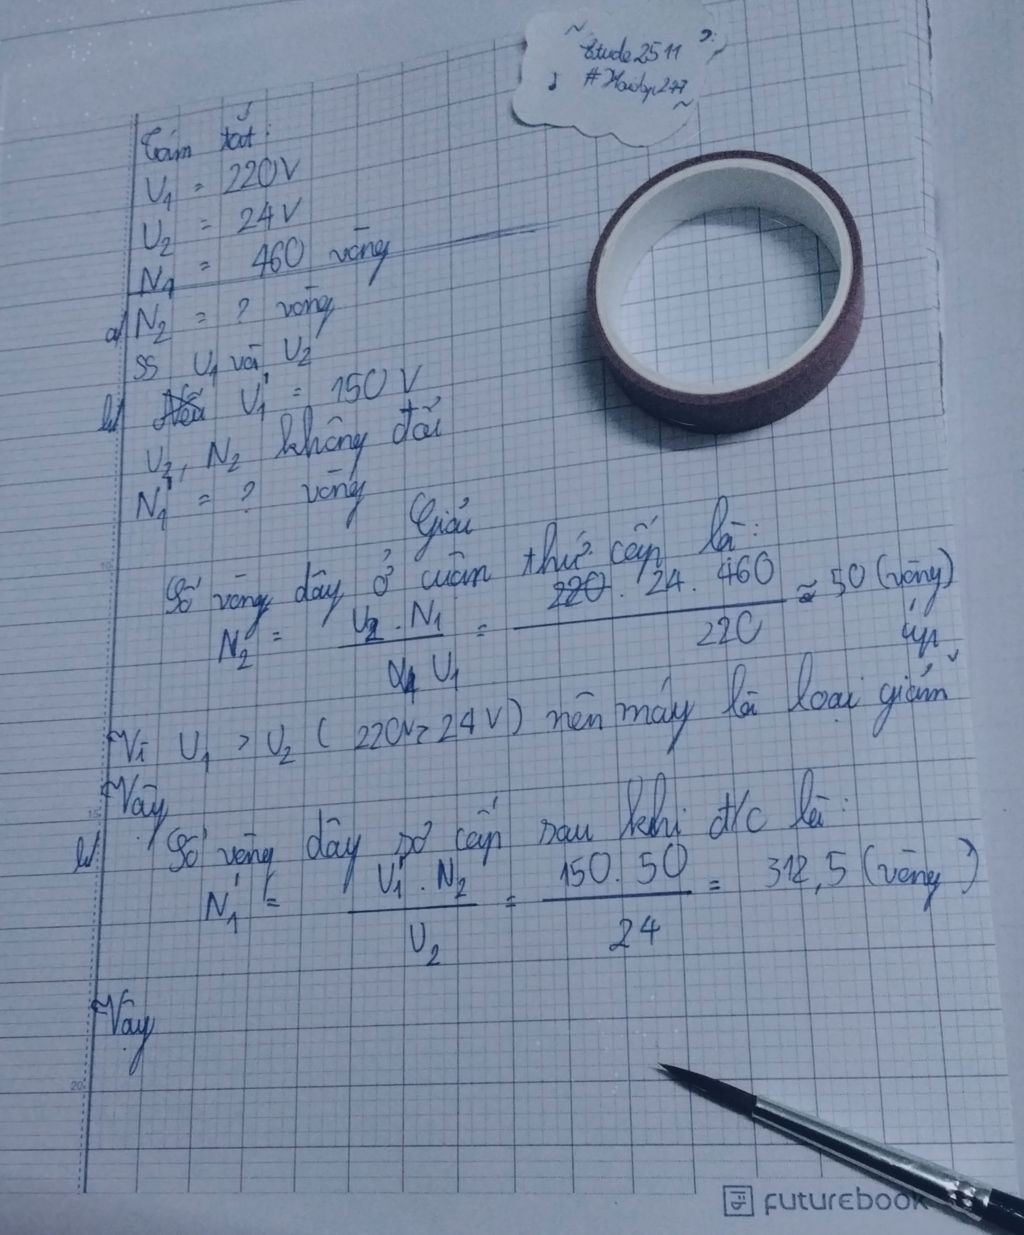 Etude2511
#Hoidap247
Tóm tắt:
U₁ = 220V
U₂ = 24V
N₁ = 460 vòng
a/ N₂ = ? vòng
SS U₁ và U₂
b/ U₁' = 150V
U₂, N₂ không đổi
N₁' = ? vòng
Giải
Số vòng dây ở cuộn thứ cấp là:
N₂ = U₂ . N₁ / U₁ = 24 . 460 / 220 ≈ 50 (vòng)
Vì U₁ > U₂ (220V > 24V) nên máy là loại giảm áp
Vậy
b/ Số vòng dây sơ cấp sau khi đ/c là:
N₁' = U₁' . N₂ / U₂ = 150 . 50 / 24 = 312,5 (vòng)
Vậy
15
20
FUTUREBOOK